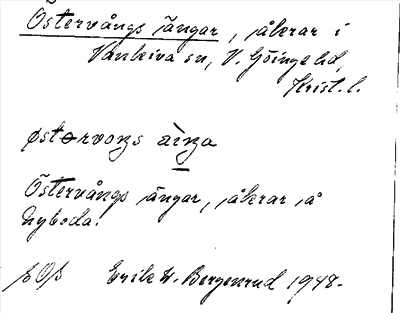 Östervångs ängar, åkrar i
Vankiva sn, V. Göinge hd,
Krist. l.
østərvoŋs àŋa
Östervångs ängar, åkrar å
Nyboda.
Erik W. Bergenrud 1948.